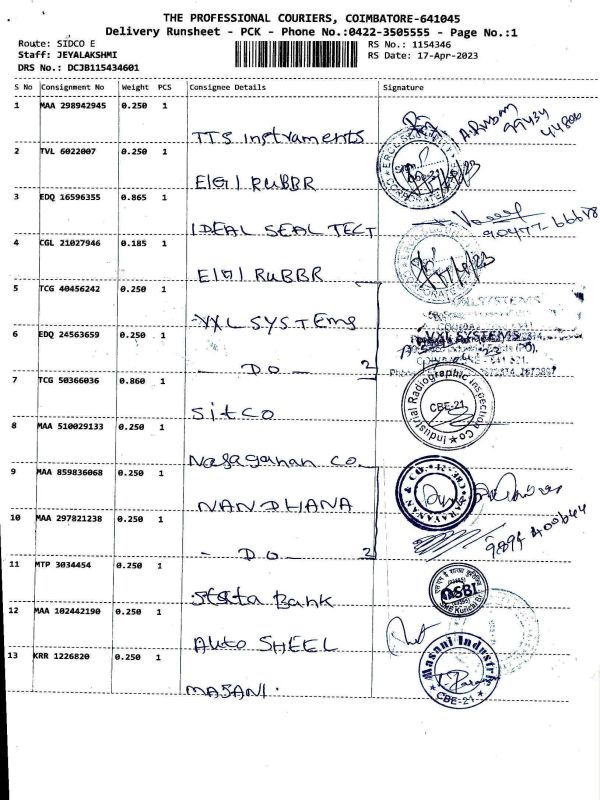 THE PROFESSIONAL COURIERS, COIMBATORE-641045
Delivery Runsheet - PCK - Phone No.:0422-3505555 - Page No.:1
Route: SIDCO E
RS No.: 1154346
Staff: JEYALAKSHMI
RS Date: 17-Apr-2023
DRS No.: DCJB115434601
S No Consignment No Weight PCS Consignee Details Signature
1 MAA 298942945 0.250 1
TTS Instraments
2 TVL 6022007 0.250 1
ElGI RUBBR
3 EDQ 16596355 0.865 1
IDEAL SEAL TECT
4 CGL 21027946 0.185 1
ElGI RUBBR
5 TCG 40456242 0.250 1
VXL SYSTEMS
6 EDQ 24563659 0.250 1
VXL SYSTEMS
- DO - 2
7 TCG 50366036 0.860 1
Industrial Radiographic Inspection Co
CBE-21
Sitco
8 MAA 510029133 0.250 1
Nasaganan Co.
9 MAA 859836068 0.250 1
NANDHANA
10 MAA 297821238 0.250 1
- DO - 2
11 MTP 3034454 0.250 1
SBI
Bank
12 MAA 102442190 0.250 1
Auto SHEEL
13 KRR 1226820 0.250 1
Masani Industris
CBE-21
MASANI.